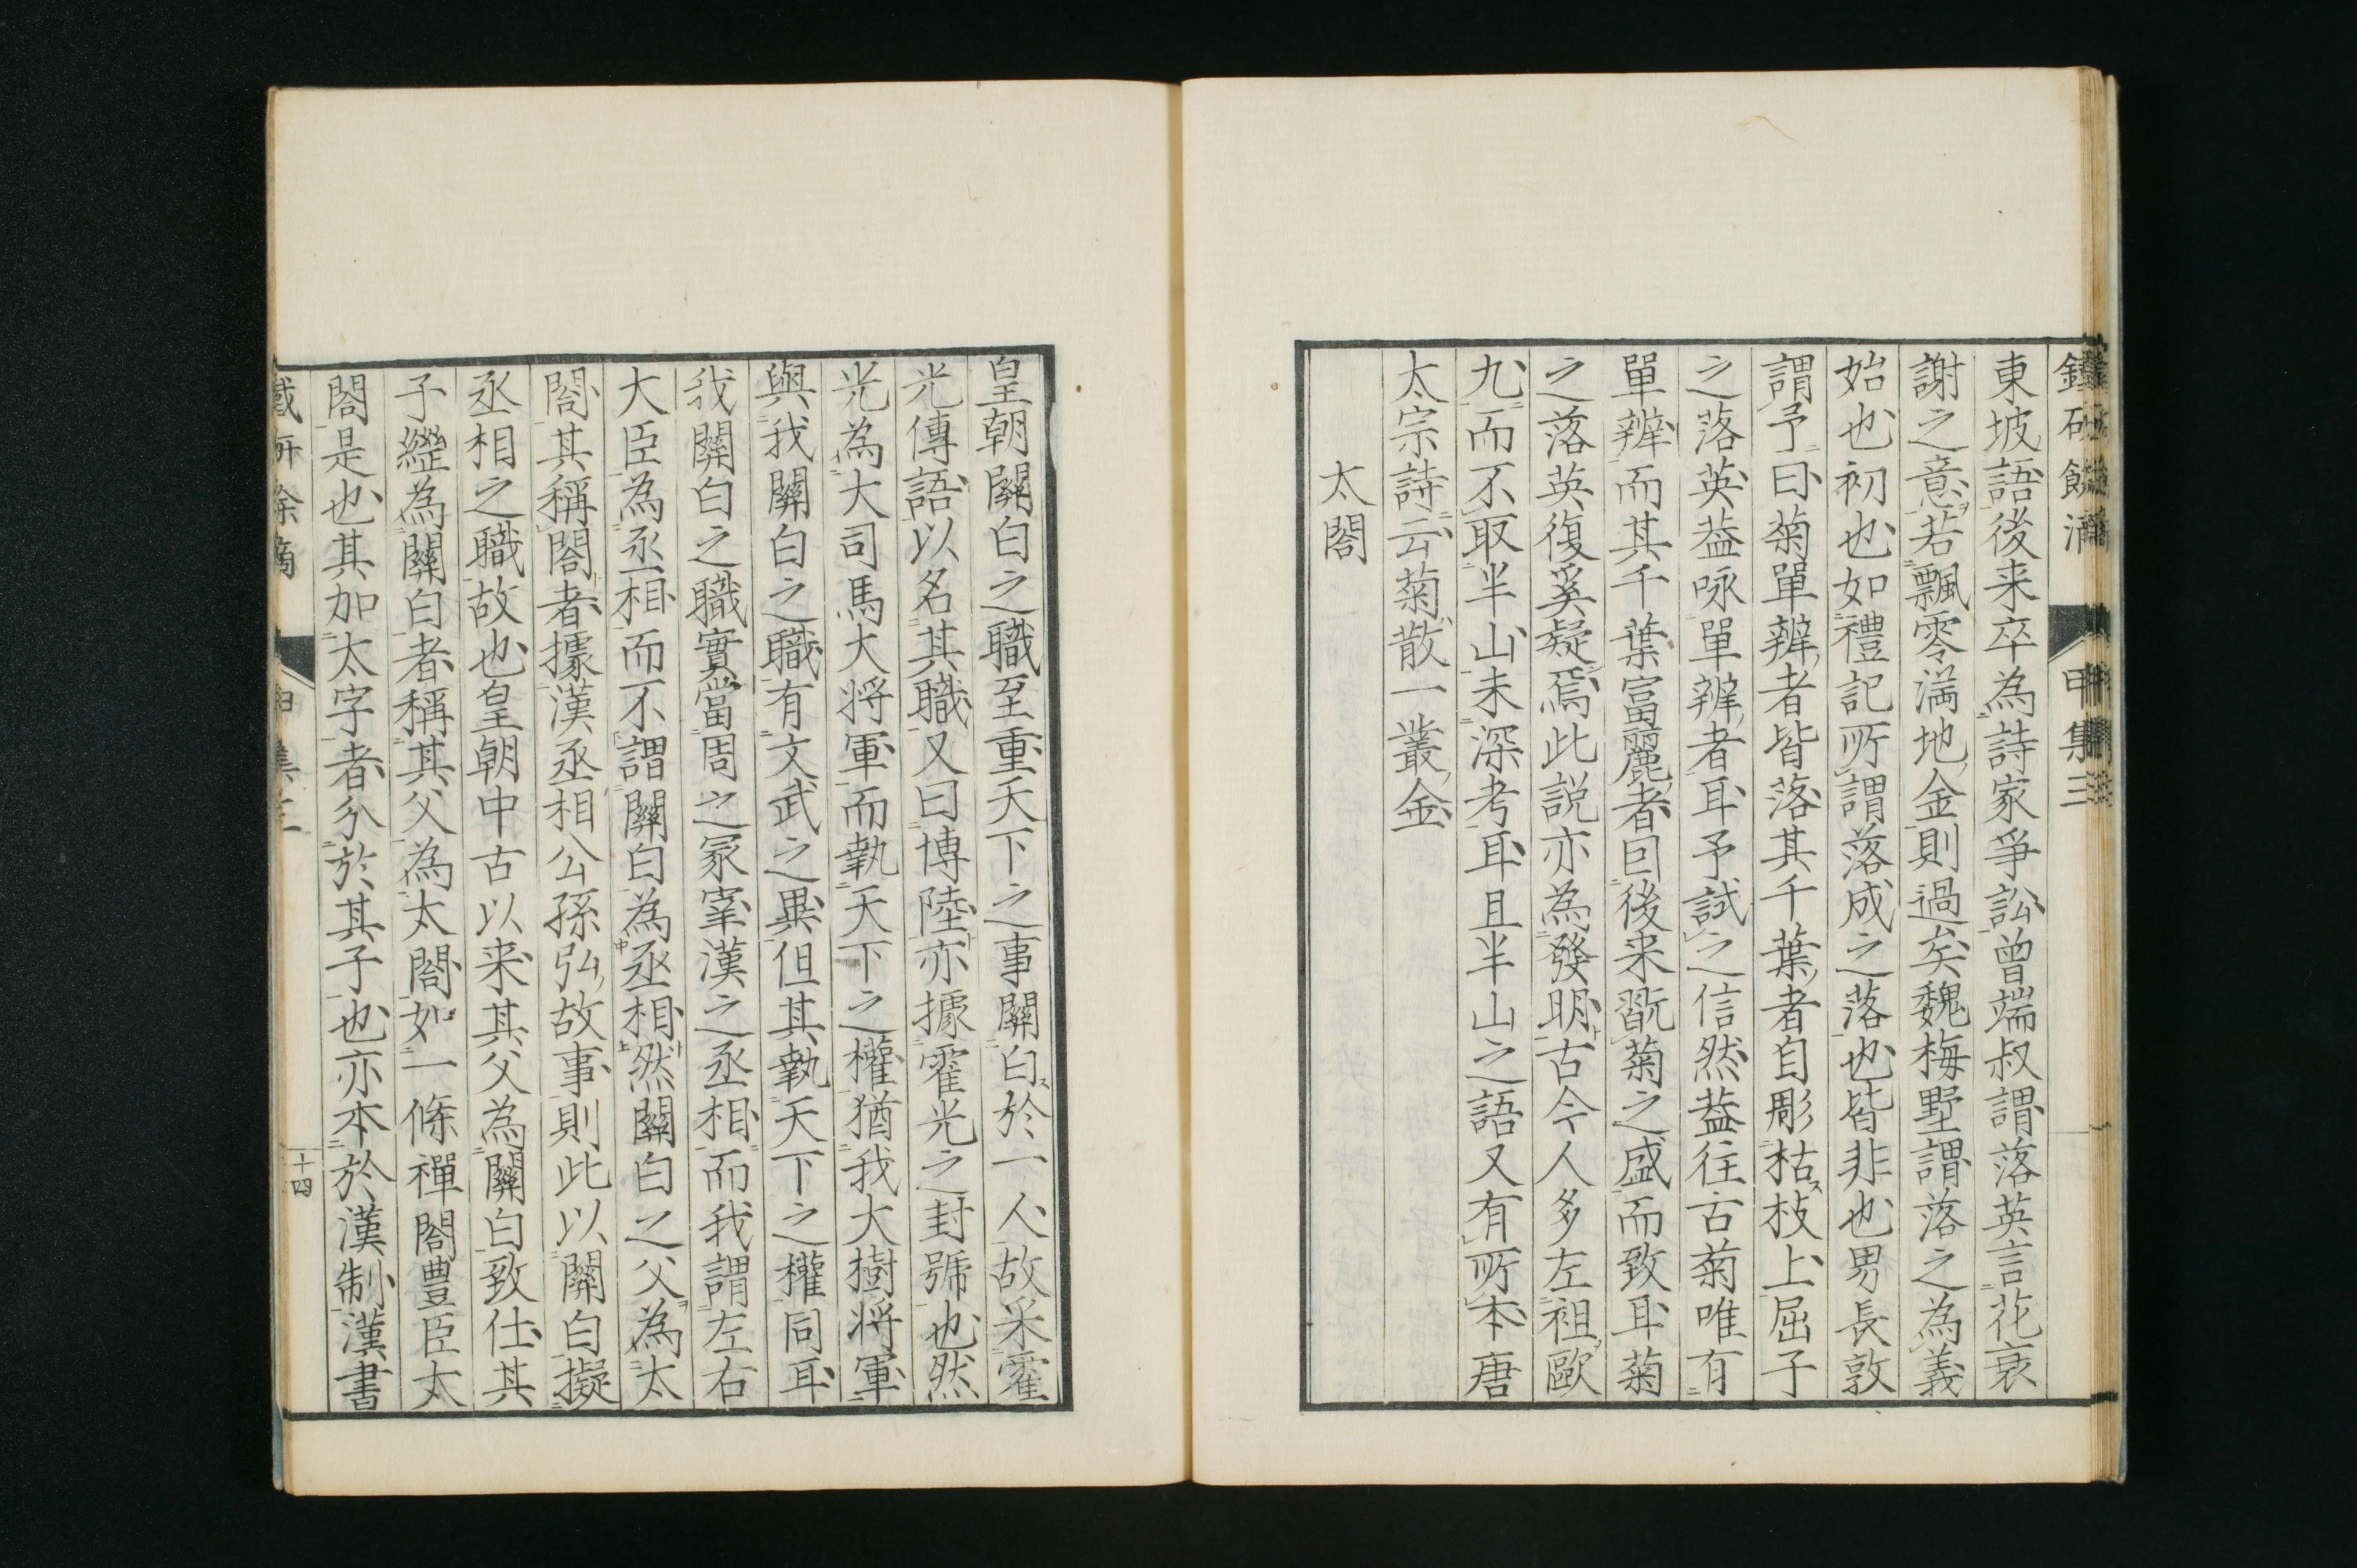 東坡語後来卒為詩家爭訟曾端叔謂落英言花衰
謝之意若飄零満地金則過矣魏梅墅謂落之為義
始也初也如禮記所謂落成之落也皆非也男長敦
謂予曰菊單辨者皆落其千葉者自彫枯枝上屈子
之落英葢咏單辨者耳予試之信然葢徃古菊唯有
單辨而其千葉富麗者曰後来翫菊之盛而致耳菊
之落英復奚疑焉此説亦為發明古今人多左袒歐
九而不取半山未深考耳且半山之語又有所本唐
太宗詩云菊散一叢金
太閤
皇朝關白之職至重天下之事關白於一人故采霍
光傳語以名其職又曰博陸亦據霍光之封號也然
光為大司馬大将軍而執天下之權猶我大樹将軍
與我關白之職有文武之異但其執天下之權同耳
我關白之職實當周之冢宰漢之丞相而我謂左右
大臣為丞相而不謂關白為丞相然關白之父為太
閤其稱閤者據漢丞相公孫弘故事則此以關白擬
丞相之職故也皇朝中古以来其父為關白致仕其
子繼為關白者稱其父為太閤如一條禪閤豊臣太
閤是也其加太字者分於其子也亦本於漢制漢書
十四